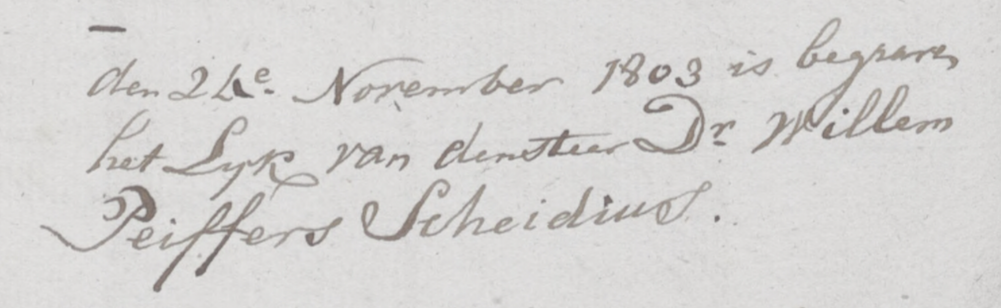 den 24e. November 1803 is begraven
het Lyk van den Heer Dr Willem
Peiffers Scheidius.